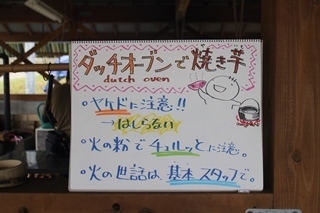 ダッチオーブンで焼き芋
dutch oven
・ヤケドに注意!!
→はしらない
・火の粉でチュルッとに注意。
・火の世話は、基本スタッフで。